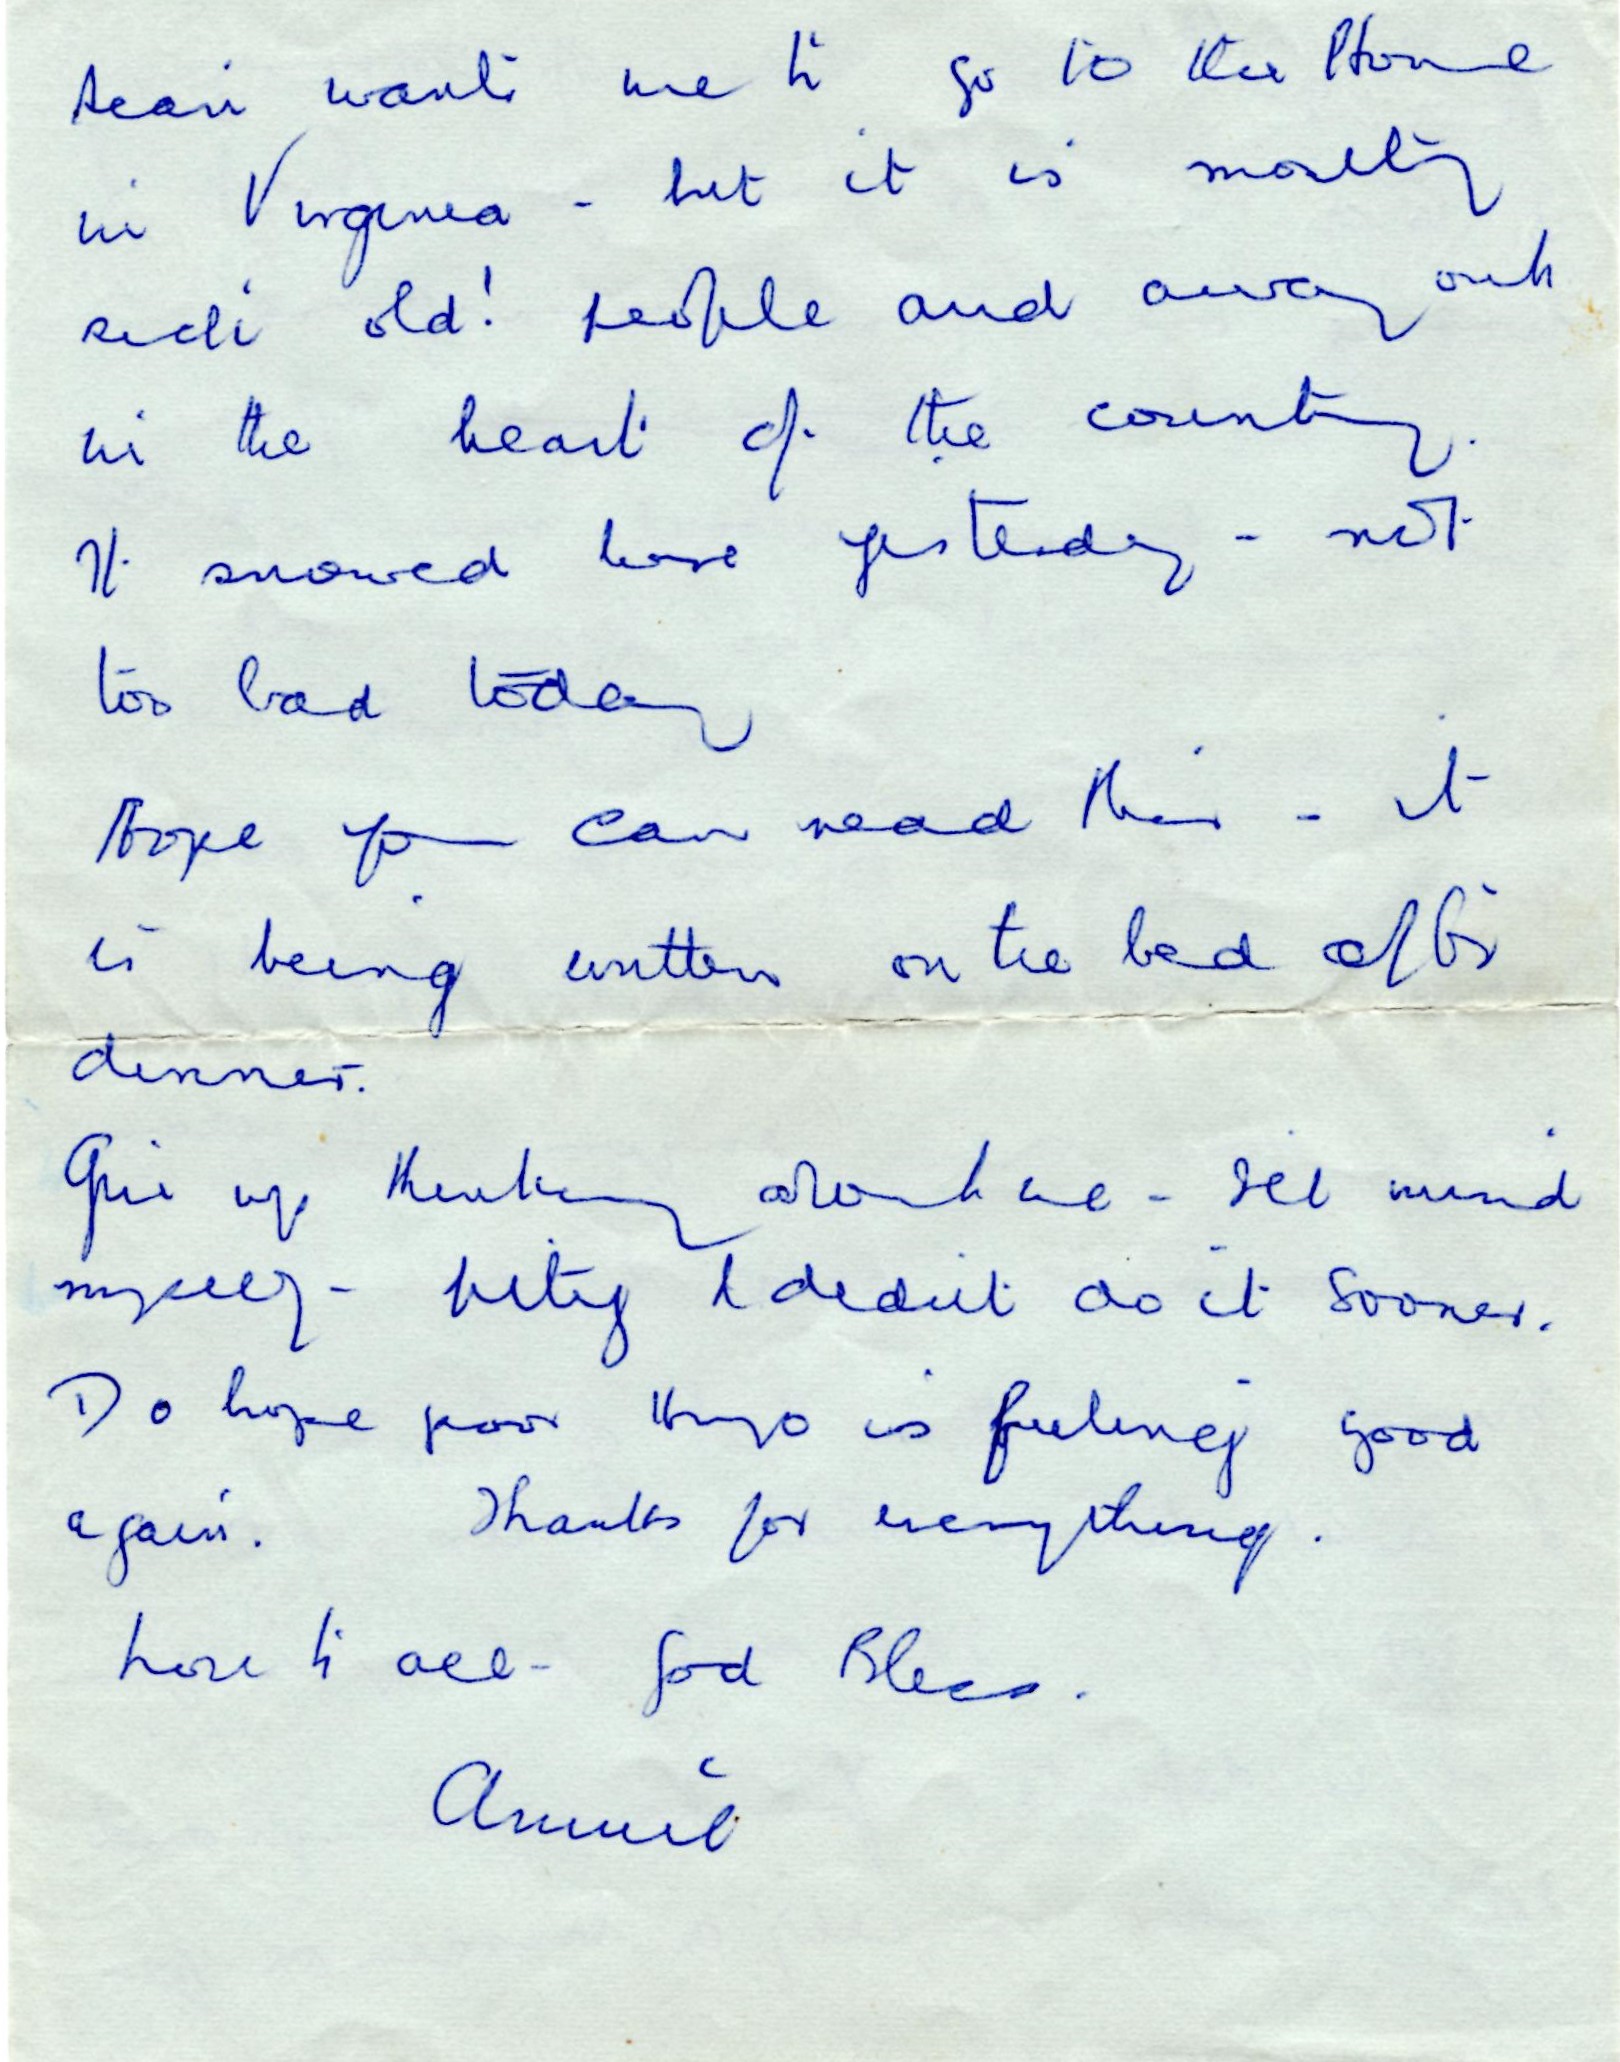 Sean wants me to go to the Home
in Virginia - but it is mostly
such old! people and away out
in the heart of the country.
It snowed here yesterday - not
too bad today
Hope you can read this - it
is being written on the bed after
dinner.
Give up thinking about me - I'll mind
myself - pity I didn't do it sooner.
Do hope poor Hugo is feeling good
again. Thanks for everything.
Love to all - God Bless.